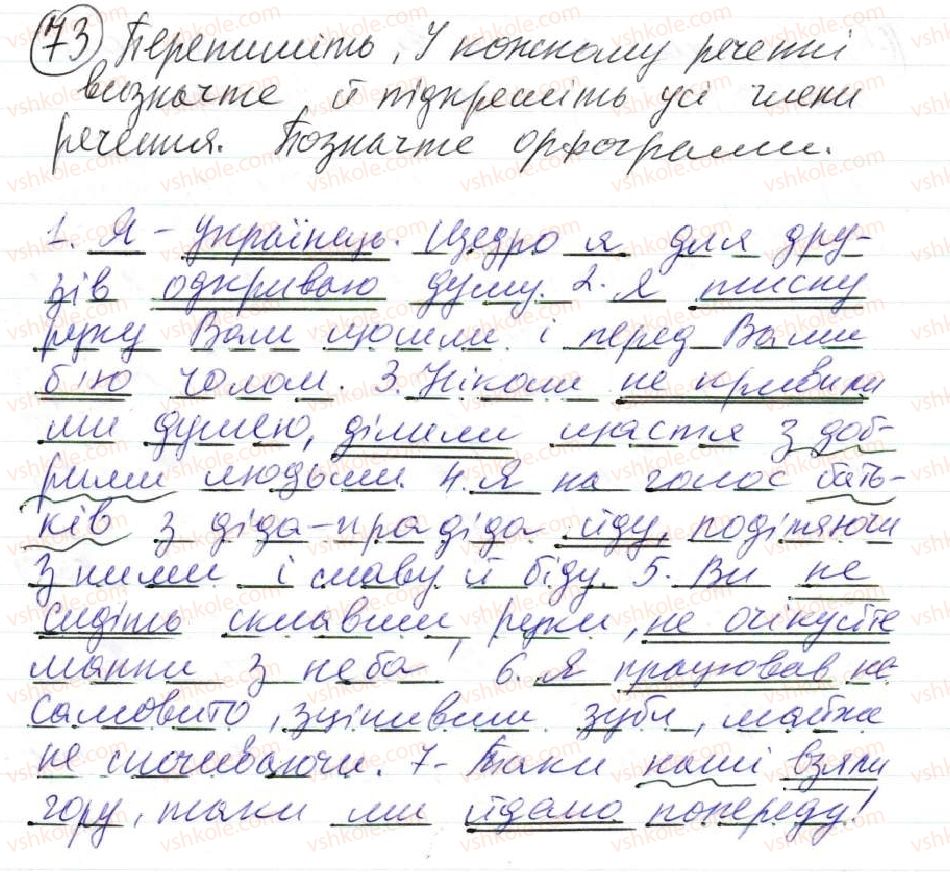 73 Перепишіть. У кожному реченні
визначте й підкресліть усі члени
речення. Позначте орфограми.
1. Я – українець. Щедро я для дру-
зів одкриваю душу. 2. Я тисну
руку Вам щошми і перед Вами
б'ю чолом. 3. Ніколи не кривили
ми душею, ділили щастя з доб-
рими людьми. 4. Я на голос бать-
ків з діда-прадіда йду, поділяючи
з ними і славу й біду. 5. Ви не
сидіть склавши руки, не очікуйте
манни з неба! 6. Я працював не-
самовито, зціпивши зуби, майже
не спочиваючи. 7. Таки наші взяли
гору, таки ми йдемо попереду!